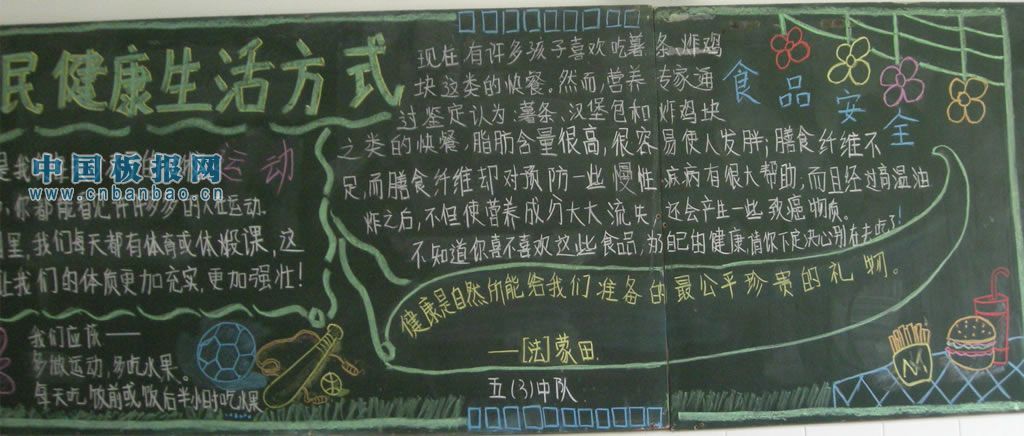 民健康生活方式
运动
中国板报网
www.cnbanbao.cn
你都能看见许许多多的人在运动.
里,我们每天都有体育或体煅课,这
让我们的体质更加充实,更加强壮!
我们应该——
多做运动,多吃水果。
每天吃饭前或饭后半小时吃水果
现在有许多孩子喜欢吃薯条炸鸡
块这类的快餐。然而营养专家通
过鉴定认为:薯条、汉堡包和炸鸡块
之类的快餐,脂肪含量很高,很容易使人发胖;膳食纤维不
足,而膳食纤维却对预防一些慢性疾病有很大帮助,而且经过高温油
炸之后,不但使营养成分大大流失,还会产生一些致癌物质。
不知道你喜不喜欢这些食品,为自己的健康请你下定决心别去吃了!
食品安全
健康是自然所能给我们准备的最公平珍贵的礼物。
——[法]蒙田.
五(3)中队